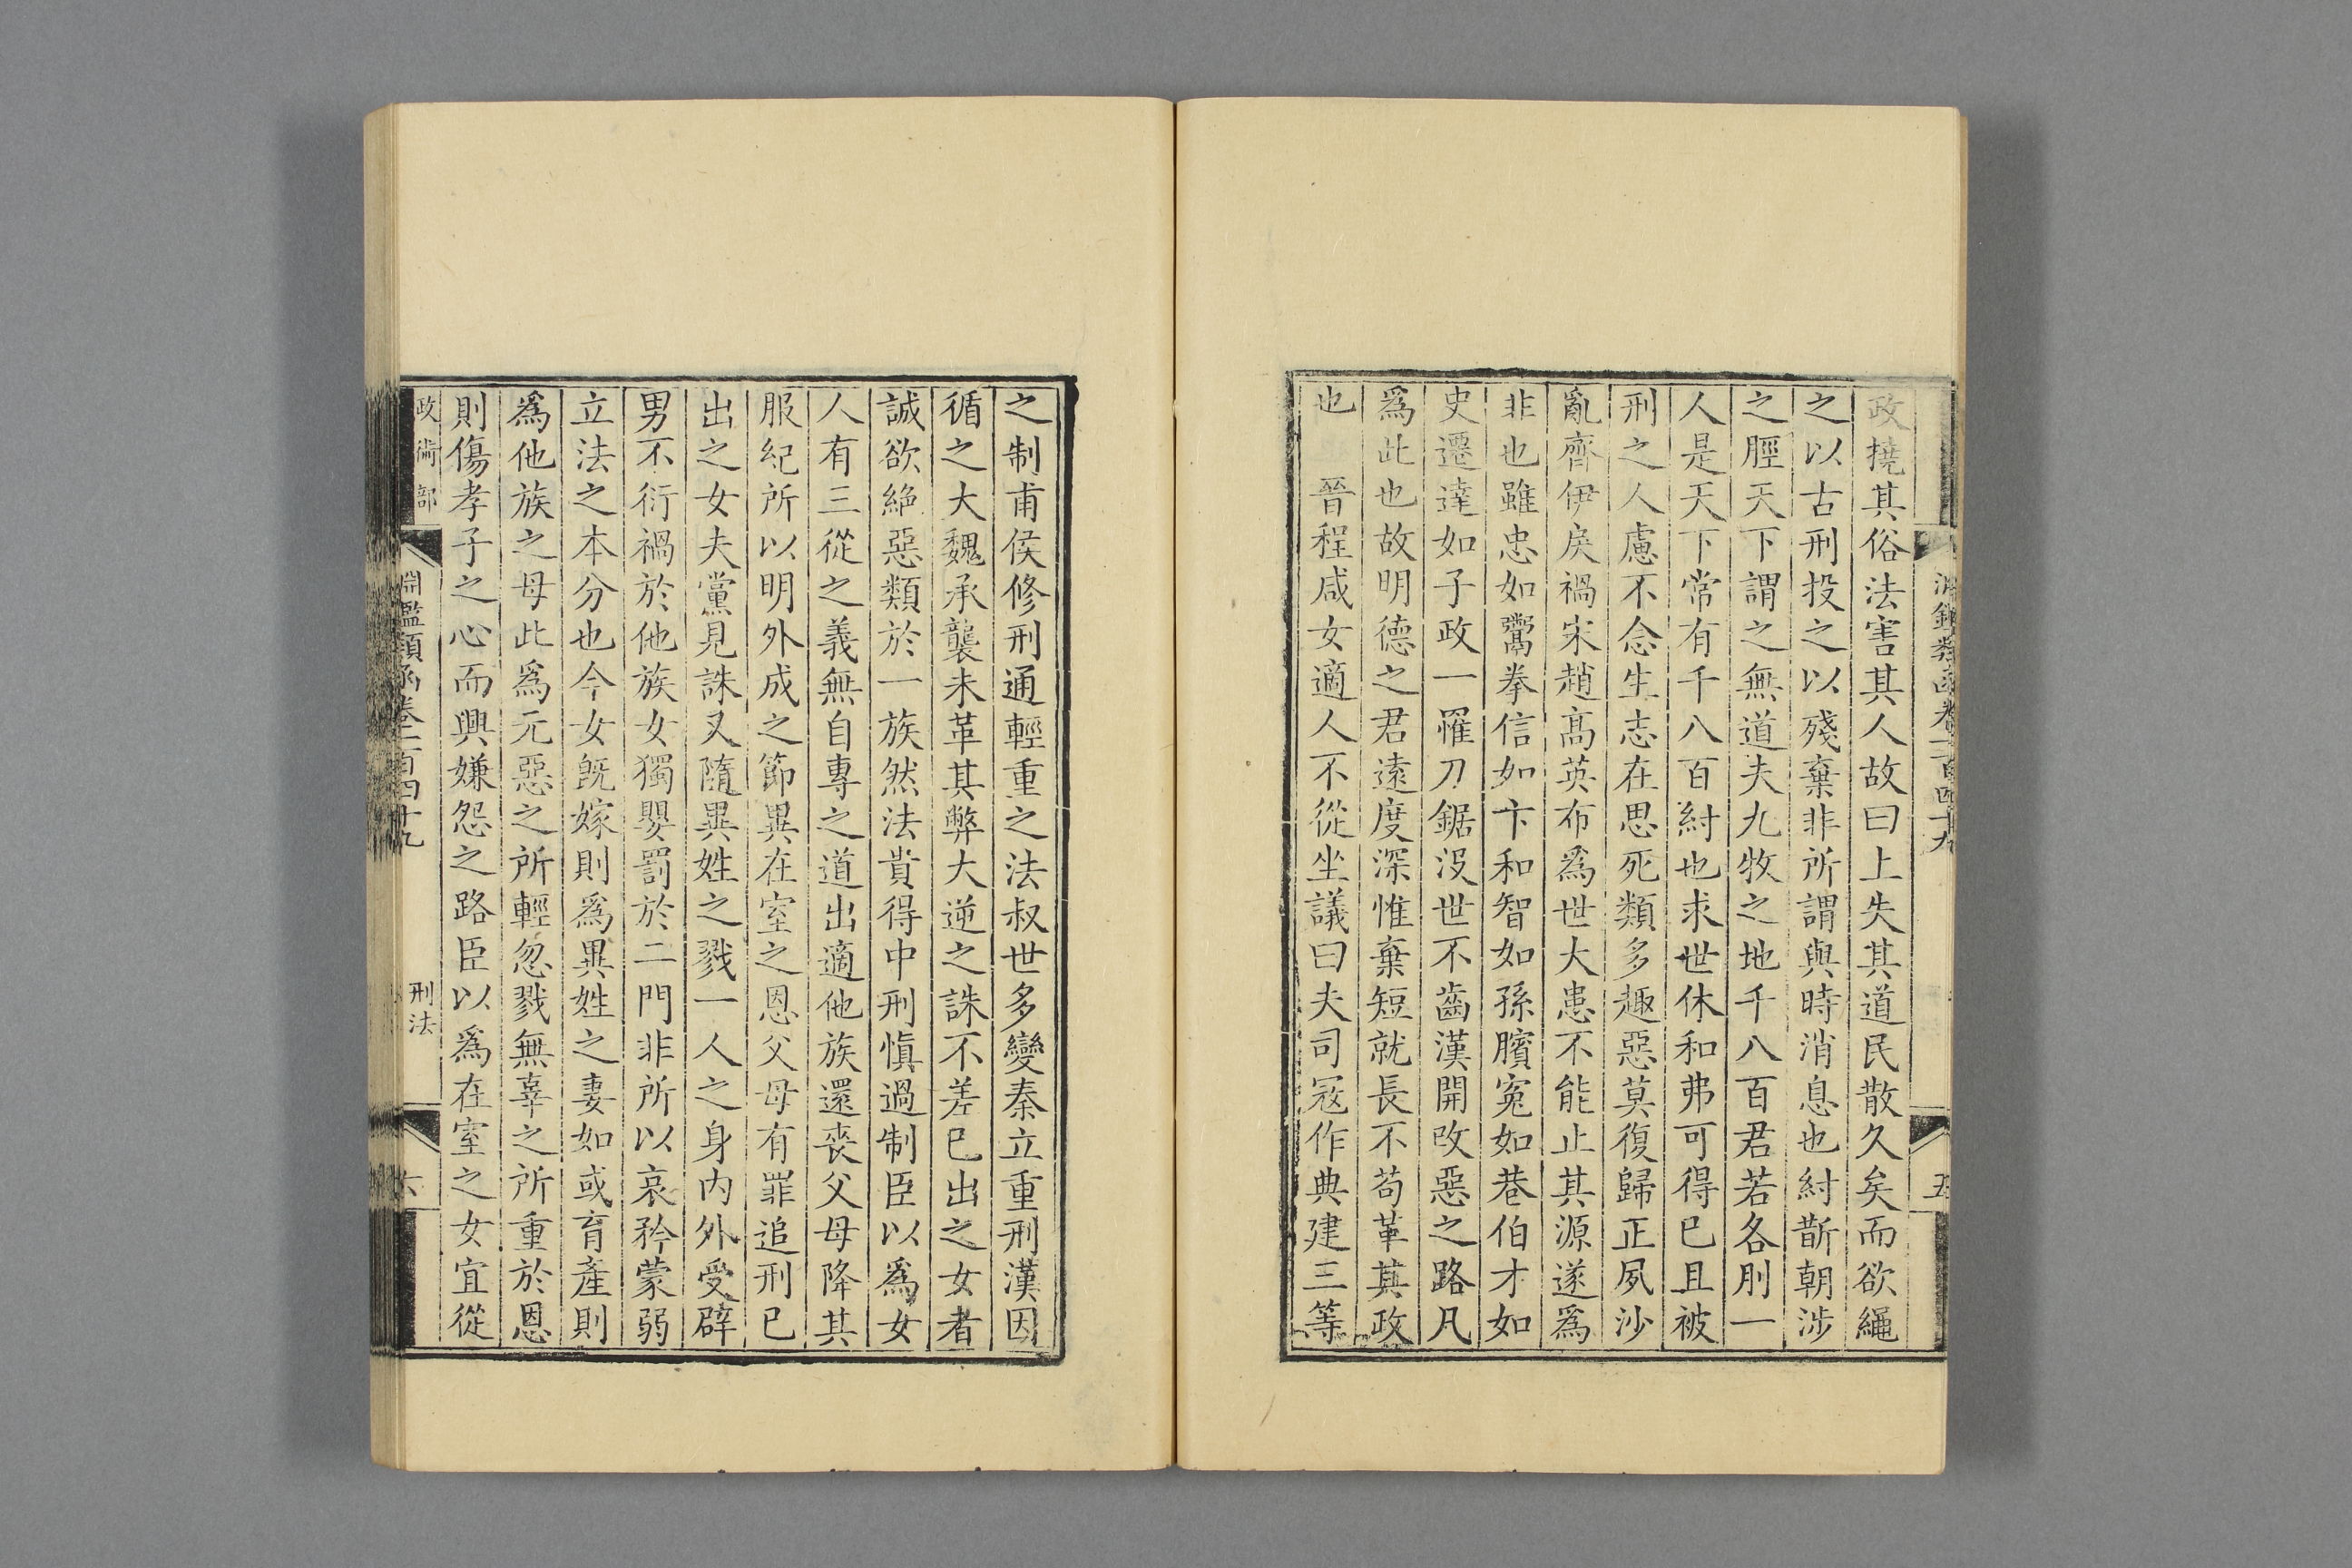 淵鑑類函卷二百四十九
五
政撓其俗法害其人故曰上失其道民散久矣而欲繩
之以古刑投之以殘棄非所謂與時消息也紂斮朝涉
之脛天下謂之無道夫九牧之地千八百君若各刖一
人是天下常有千八百紂也求世休和弗可得已且被
刑之人慮不念生志在思死類多趣惡莫復歸正夙沙
亂齊伊戾禍宋趙高英布爲世大患不能止其源遂爲
非也雖忠如鬻拳信如卞和智如孫臏寃如巷伯才如
史遷達如子政一罹刀鋸沒世不齒漢開改惡之路凡
爲此也故明德之君遠度深惟棄短就長不苟革其政
也　晉程咸女適人不從坐議曰夫司冦作典建三等
之制甫侯修刑通輕重之法叔世多變秦立重刑漢因
循之大魏承襲未革其弊大逆之誅不差已出之女者
誠欲絶惡類於一族然法貴得中刑愼過制臣以爲女
人有三從之義無自專之道出適他族還喪父母降其
服紀所以明外成之節異在室之恩父母有罪追刑已
出之女夫黨見誅又隨異姓之戮一人之身内外受辟
男不衍禍於他族女獨嬰罰於二門非所以哀矜蒙弱
立法之本分也今女旣嫁則爲異姓之妻如或育產則
爲他族之母此爲元惡之所輕忽戮無辜之所重於恩
則傷孝子之心而興嫌怨之路臣以爲在室之女宜從
政術部
淵鑑類函卷二百四十九
刑法
六